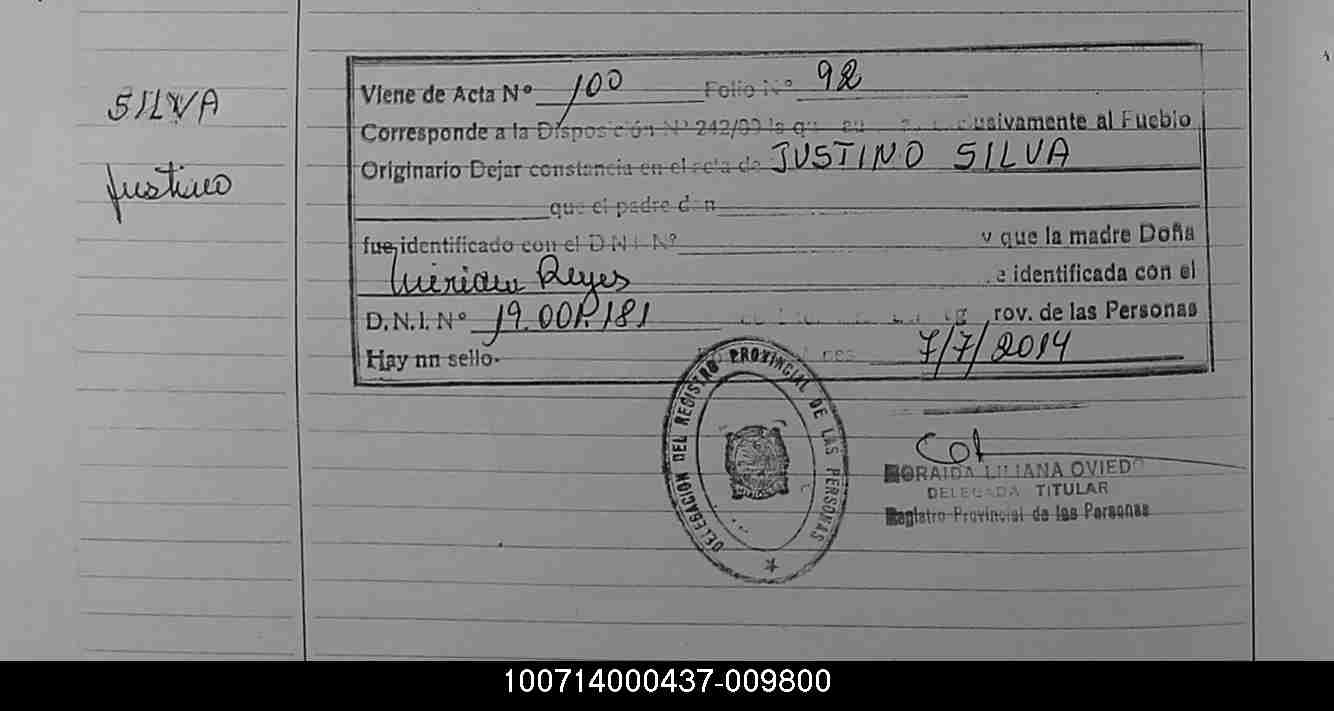 SILVA
Justino
Viene de Acta Nº 100 Folio Nº 92
Corresponde a la Disposición Nº 242/09 usivamente al Pueblo
Originario Dejar constancia en el acta de JUSTINO SILVA
que el padre don
fue identificado con el D.N.I. Nº y que la madre Doña
Miriam Reyes e identificada con el
D.N.I. Nº 19.001.181 rov. de las Personas
Hay nn sello. 7/7/2014
DELEGACION DEL REGISTRO PROVINCIAL DE LAS PERSONAS
ORAIDA LILIANA OVIEDO
DELEGADA TITULAR
Registro Provincial de las Personas
100714000437-009800